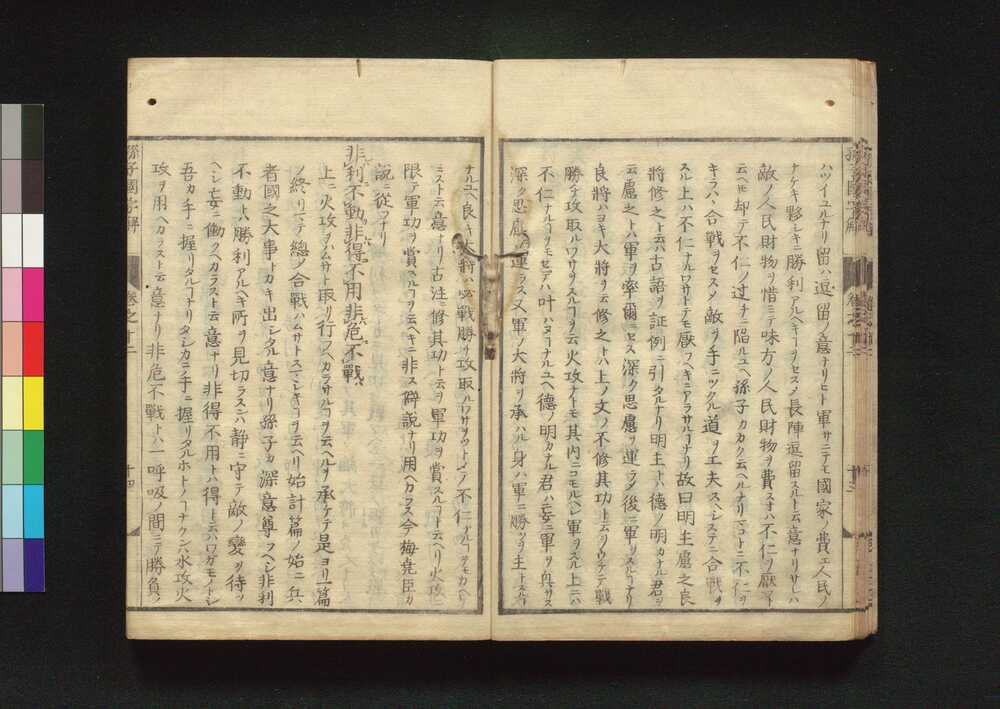 ハツイユルナリ留ハ逗留ノ意ナリヒト軍サニテモ國家ノ費エ人民ノ
ナケキ夥シキニ勝利アルヘキヿヲセスメ長陣逗留スルト云意ナリサレハ
敵ノ人民財物ヲ惜ミテ味方ノ人民財物ヲ費スナハ不仁ヲ厭フト
云ヘ𪜈却テ不仁ノ過チニ陥ルユヘ孫子カカク云ヘルナリマコトニ不仁ヲ
キラハヽ合戰ヲセスメ敵ヲ手ニツクル道ヲ工夫スヘシステニ合戰ヲ
スル上ハ不仁ナルワサトテモ厭フヘキニアラサルヿナリ故曰明主慮之良
將修之ト云ハ古語ヲ証例ニ引タルナリ明主トハ德ノ明カナル君ヲ
云慮之トハ軍ヲ率爾ニセス深ク思慮ヲ運ラメ後ニ軍ヲスルヿナリ
良將ハヨキ大將ヲ云修之トハ上ノ文ノ不修其功ト云ヲウケテ戰
勝チ攻取ルワサヲスルヿヲ云火攻ノトモ其内ニコモルヘシ軍ヲスル上ニハ
不仁ナルヿヲモセテハ叶ハヌヿナルユヘ德ノ明カナル君ハ妄ニ軍ヲ興サス
深ク思慮ヲ運ラス又軍ノ大將ヲ承ハル身ハ軍ニ勝ツヲ主トスル
ナルユヘ良キ大將ハ必戰勝チ攻取ルワサヲツトメテ不仁ナルヿヲモカヘリ
ミスト云意ナリ古注ニ修其功ト云ヲ軍功ヲ賞スルヿト云ヘリ火攻ニ
限テ軍功ヲ賞スヘキヿヲ云ヘキニ非ス僻説ナリ用ヘカラス今梅堯臣カ
説ニ從フナリ
非利不動非得不用非危不戰
上ニ火攻ヲハムサト取リ行フヘカラサルヿヲ云ヘルヲ承ケテ是ヨリ一篇
ノ終リマテ總ノ合戰ハムサトスマシキヿヲ云ヘリ始計篇ノ始ニ兵
者國之大事トカキ出シタル意ナリ孫子カ深意尊フヘシ非利
不動トハ勝利アルヘキ所ヲ見切ラスンハ静ニ守テ敵ノ變ヲ待ツ
ヘシ妄ニ働クヘカラスト云意ナリ非得不用トハ得ト云ハワガモノトシ
吾カ手ニ握リタルヿナリタシカニ手ニ握リタルホトノヿナクンハ水攻火
攻ヲ用ヘカラスト云意ナリ非危不戰トハ一呼吸ノ間ニテ勝負ノ
孫子國字解
卷之十二
十四
十三